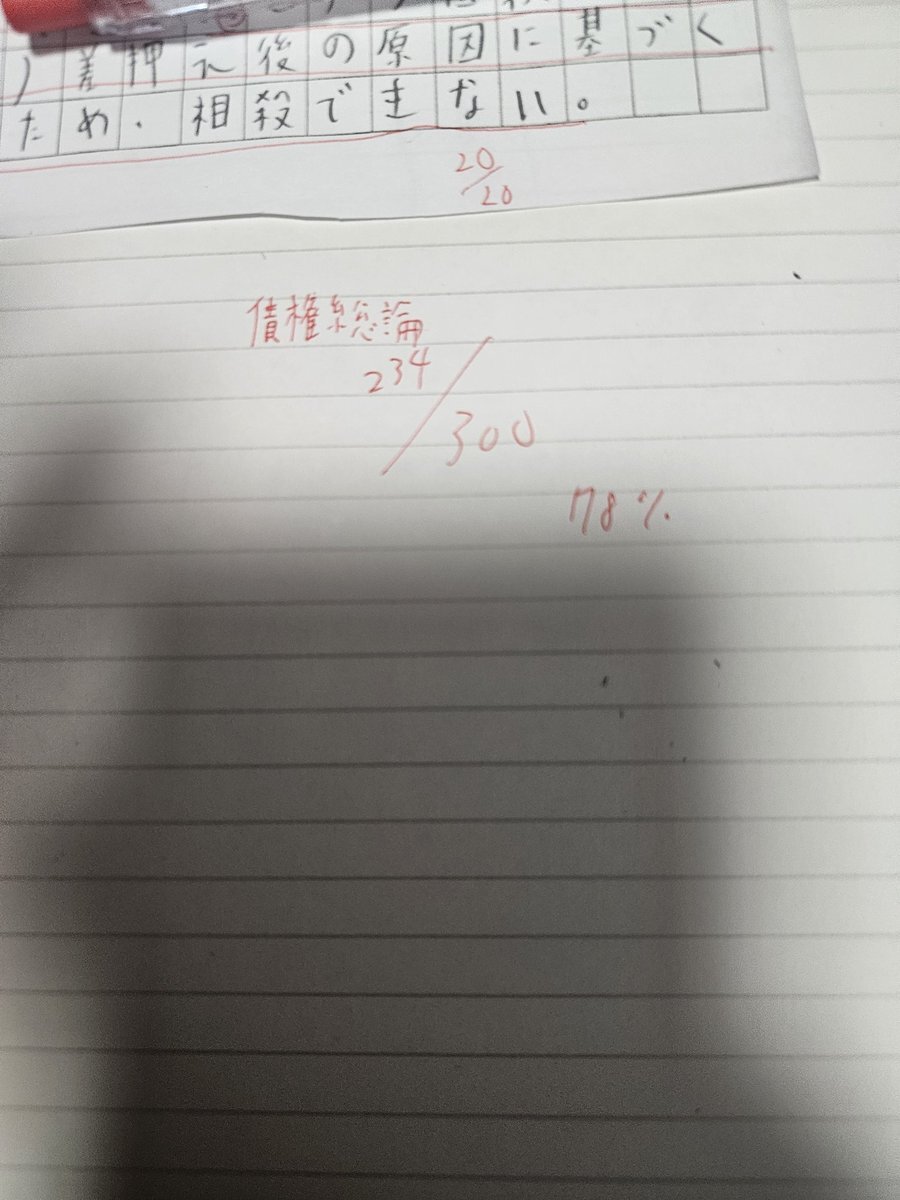 差押え後の原因に基づく
ため、相殺できない。
20/20
債権総論
234/300
78%